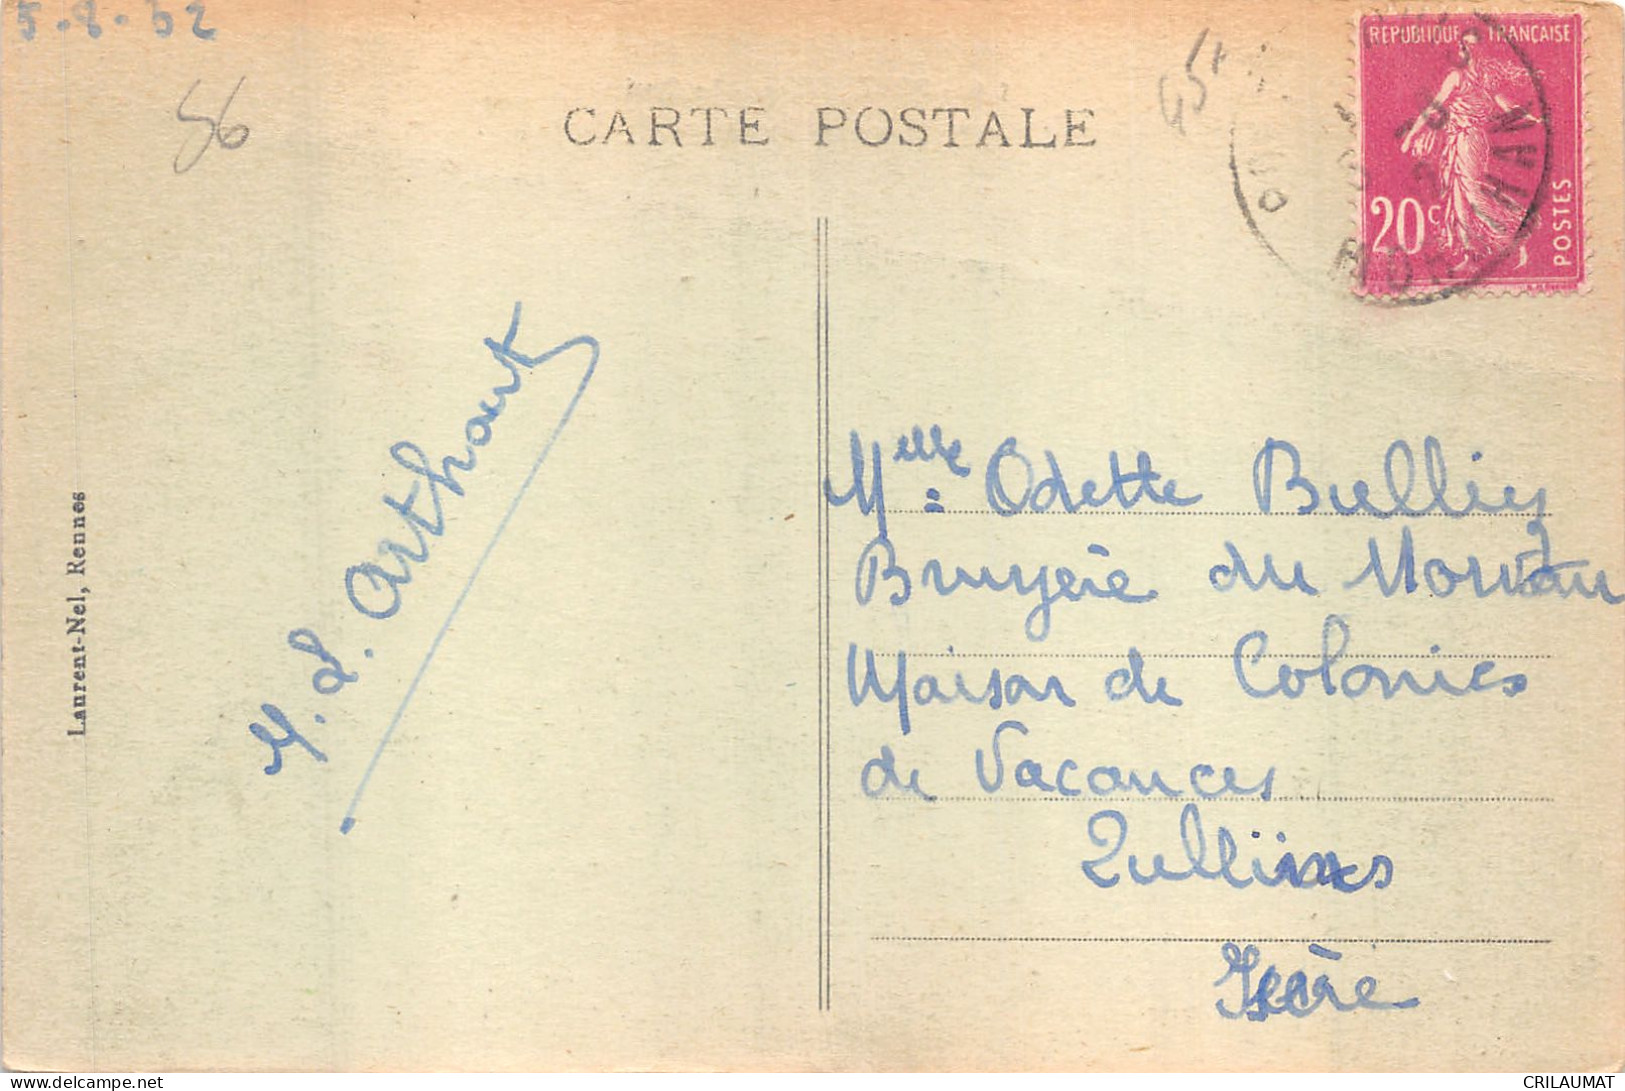 5-8-32
56
45t
CARTE POSTALE
REPUBLIQUE FRANÇAISE
20c
POSTES
MORBIHAN
Laurent-Nel, Rennes
M. L. Arthaut
Melle Odette Bulliez
Bruyère du Morvan
Maison de Colonies
de Vacances
Tullins
Isère
www.delcampe.net
CRILAUMAT